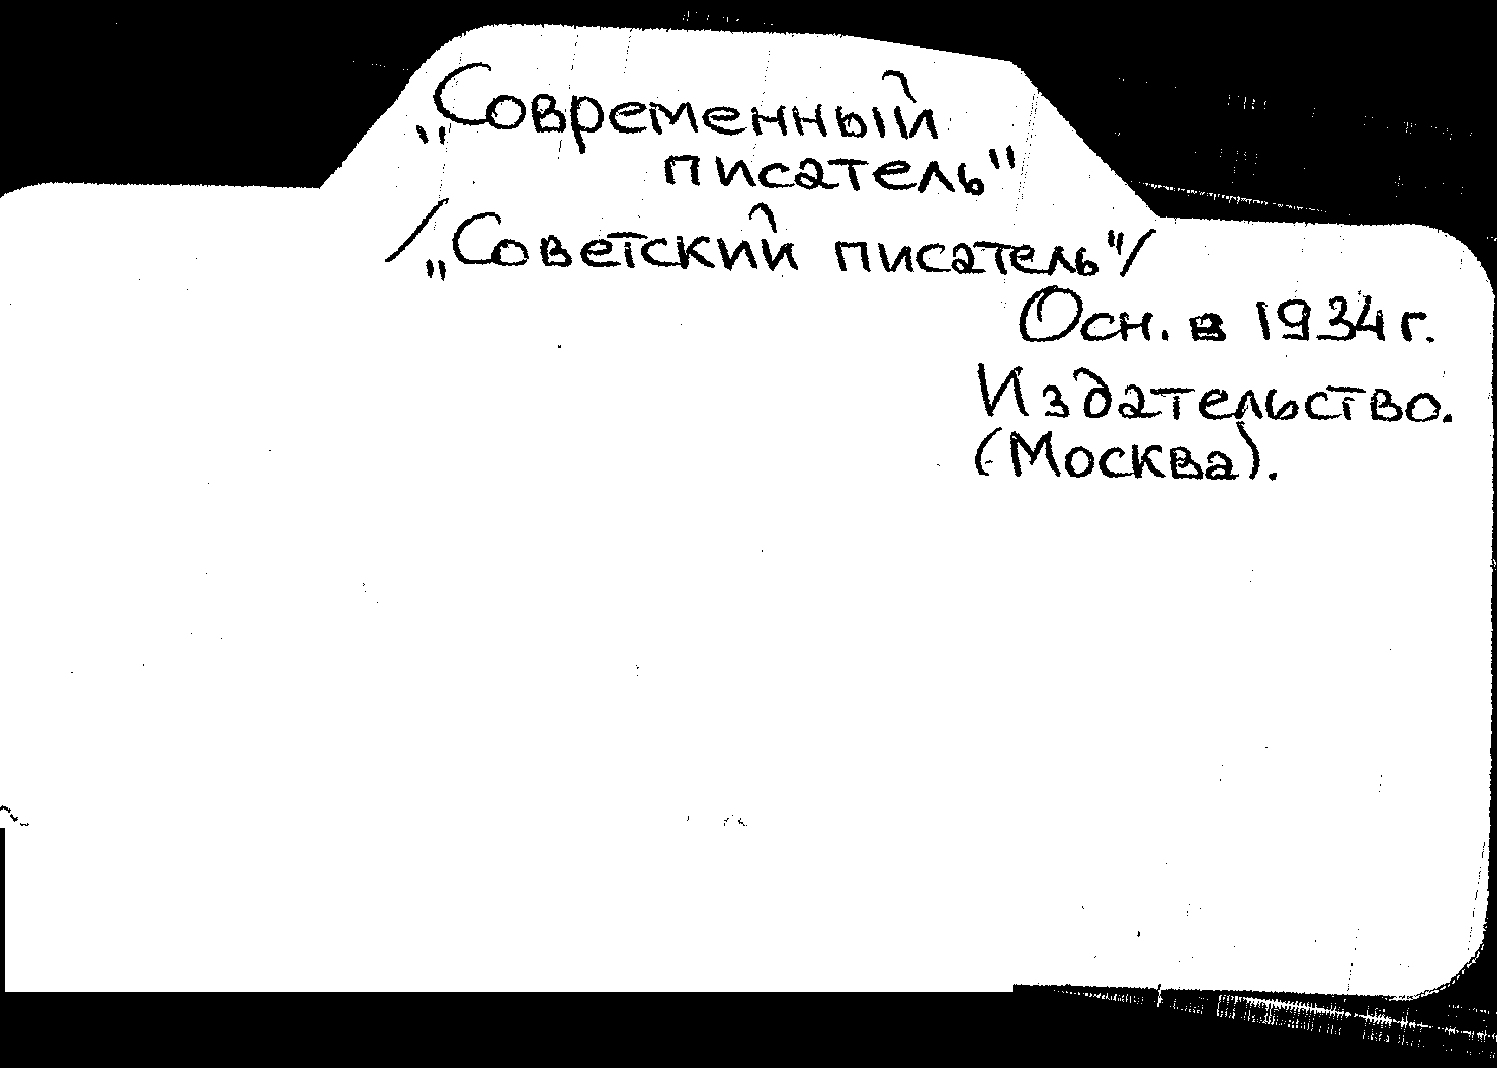 „Современный
писатель"
/„Советский писатель"/
Осн. в 1934 г.
Издательство.
(Москва).